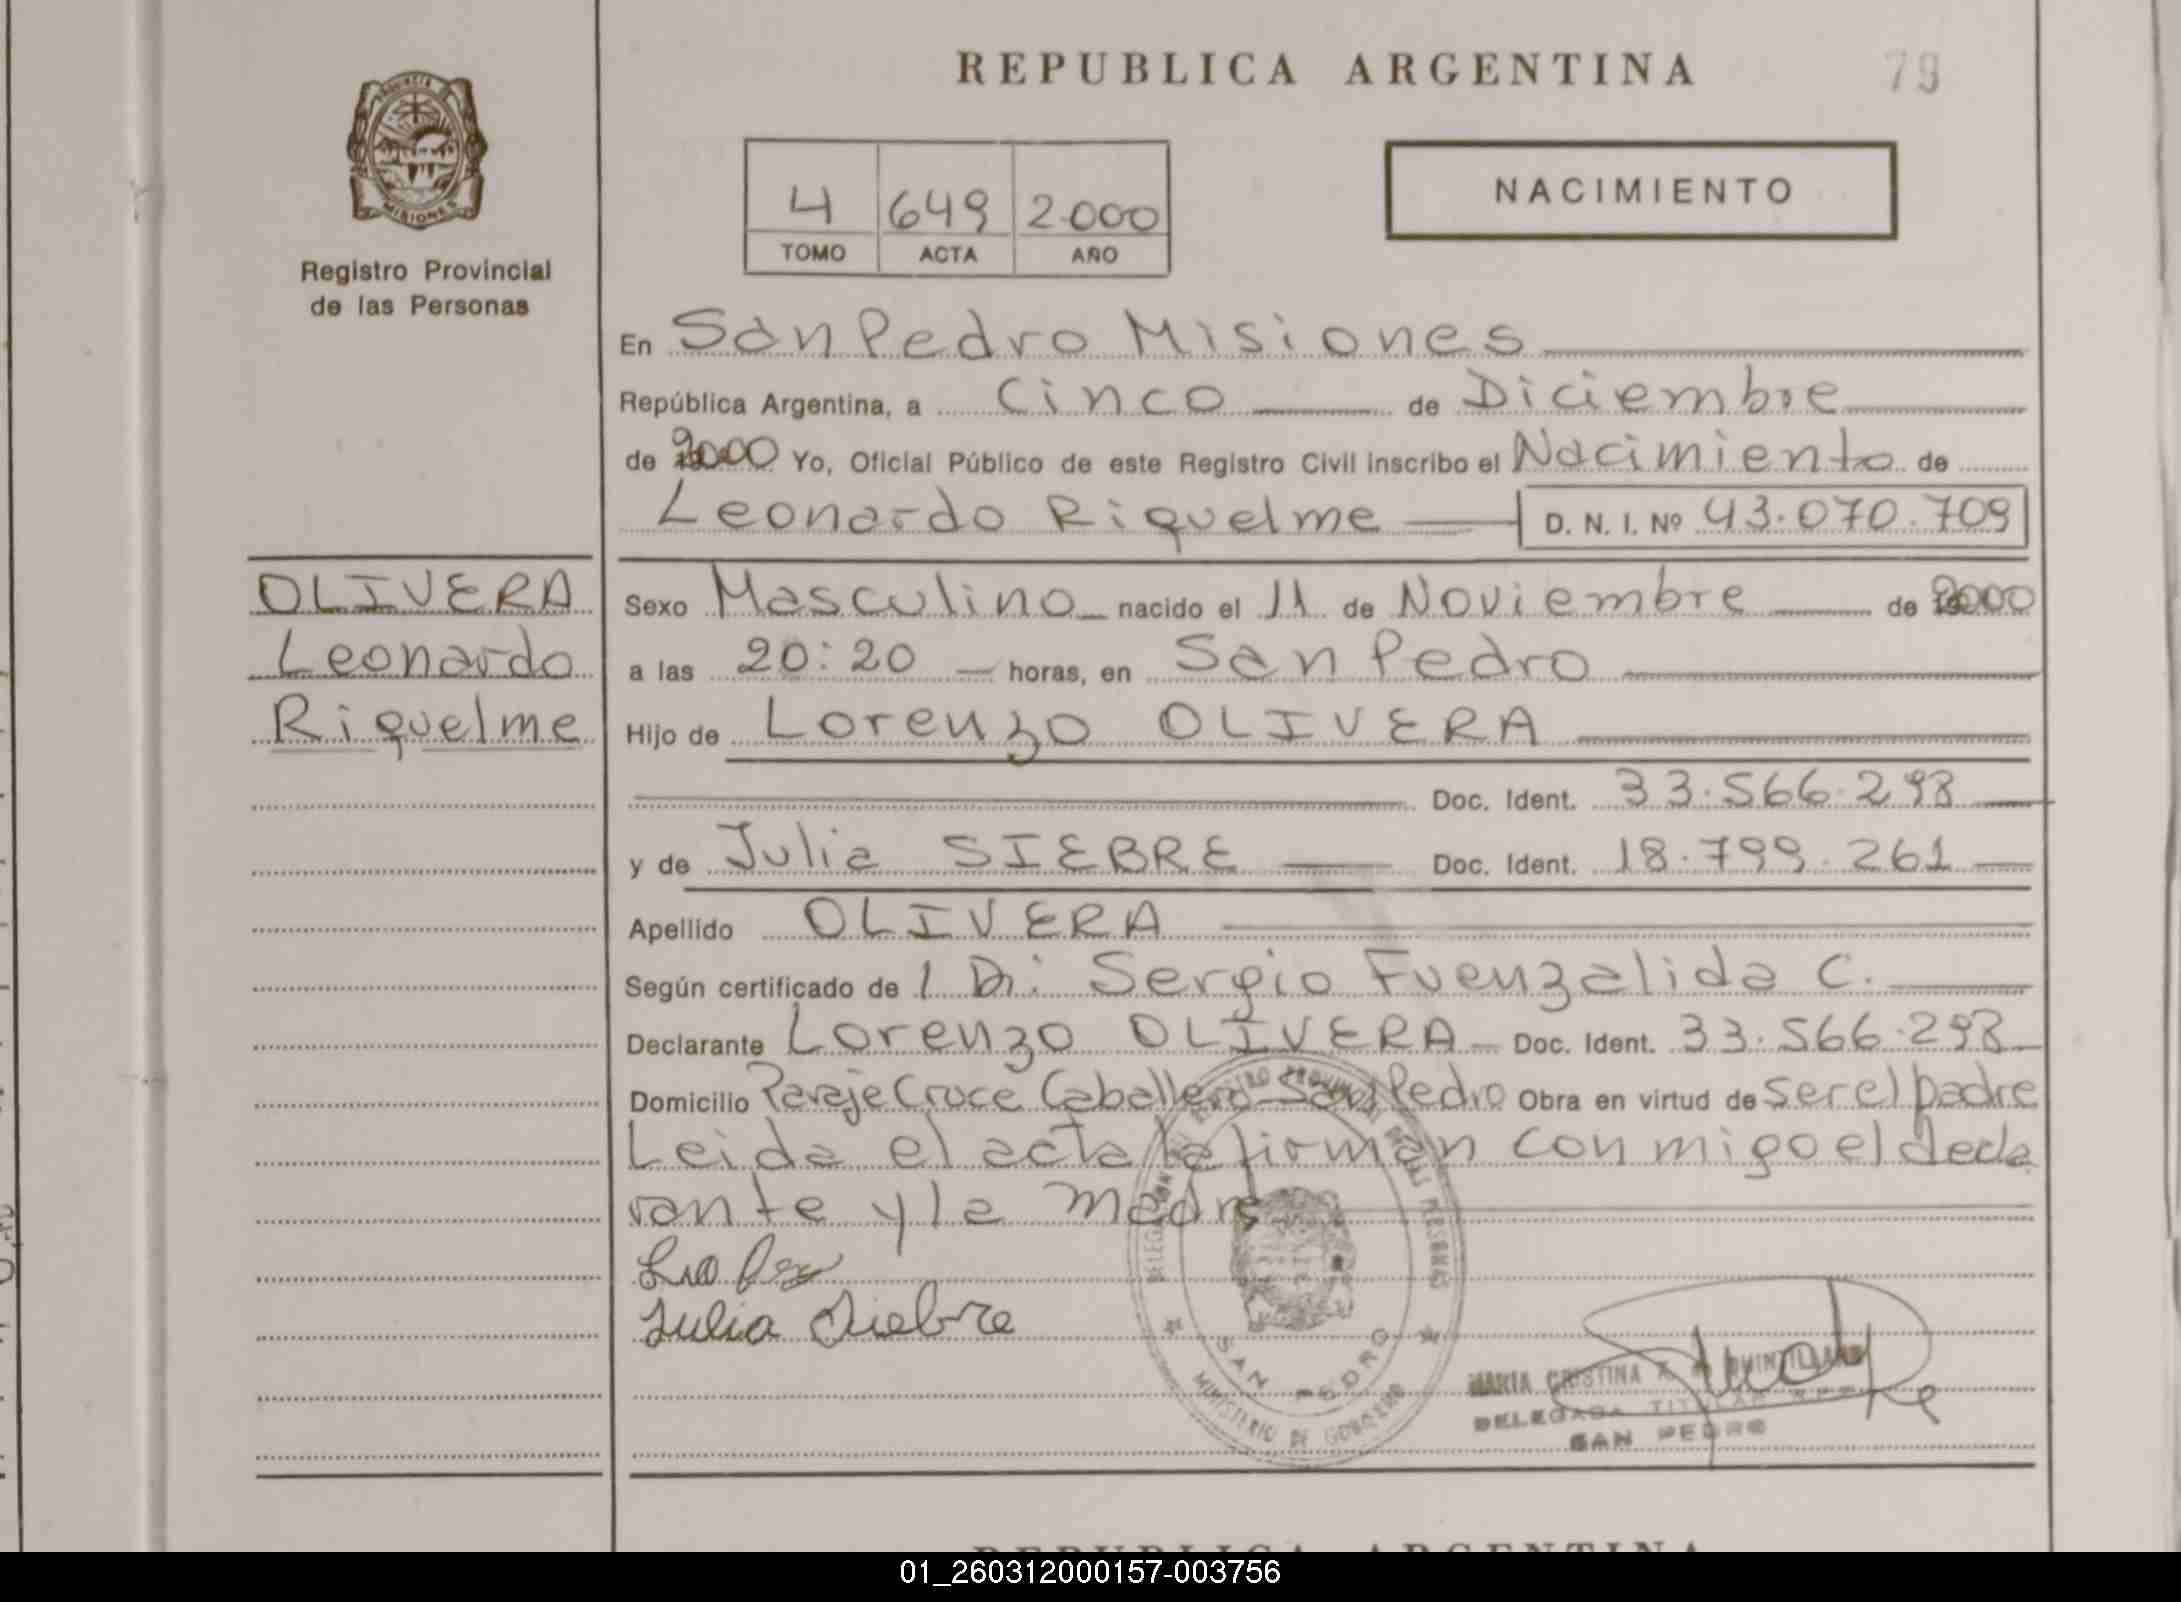 REPUBLICA ARGENTINA
79
PROVINCIA DE
MISIONES
Registro Provincial
de las Personas
4 649 2.000
TOMO ACTA AÑO
NACIMIENTO
En San Pedro Misiones
República Argentina, a Cinco de Diciembre
de 2000 Yo, Oficial Público de este Registro Civil inscribo el Nacimiento de
Leonardo Riquelme D. N. I. Nº 43.070.709
OLIVERA
Leonardo
Riquelme
Sexo Masculino nacido el 11 de Noviembre de 2000
a las 20:20 horas, en San Pedro
Hijo de Lorenzo OLIVERA
Doc. Ident. 33.566.298
y de Julia SIEBRE Doc. Ident. 18.799.261
Apellido OLIVERA
Según certificado de l Dr: Sergio Fuenzalida C.
Declarante Lorenzo OLIVERA Doc. Ident. 33.566.298
Domicilio Paraje Cruce Caballero San Pedro Obra en virtud de ser el padre
Leida el acta la firman con migo el decla
rante y la madre
Julia Siebre
REGISTRO PROVINCIAL DE LAS PERSONAS
SAN PEDRO
MINISTERIO DE GOBIERNO
MARIA CRISTINA QUINTILLAN
DELEGADA TITULAR
SAN PEDRO
REPUBLICA ARGENTINA
01_260312000157-003756